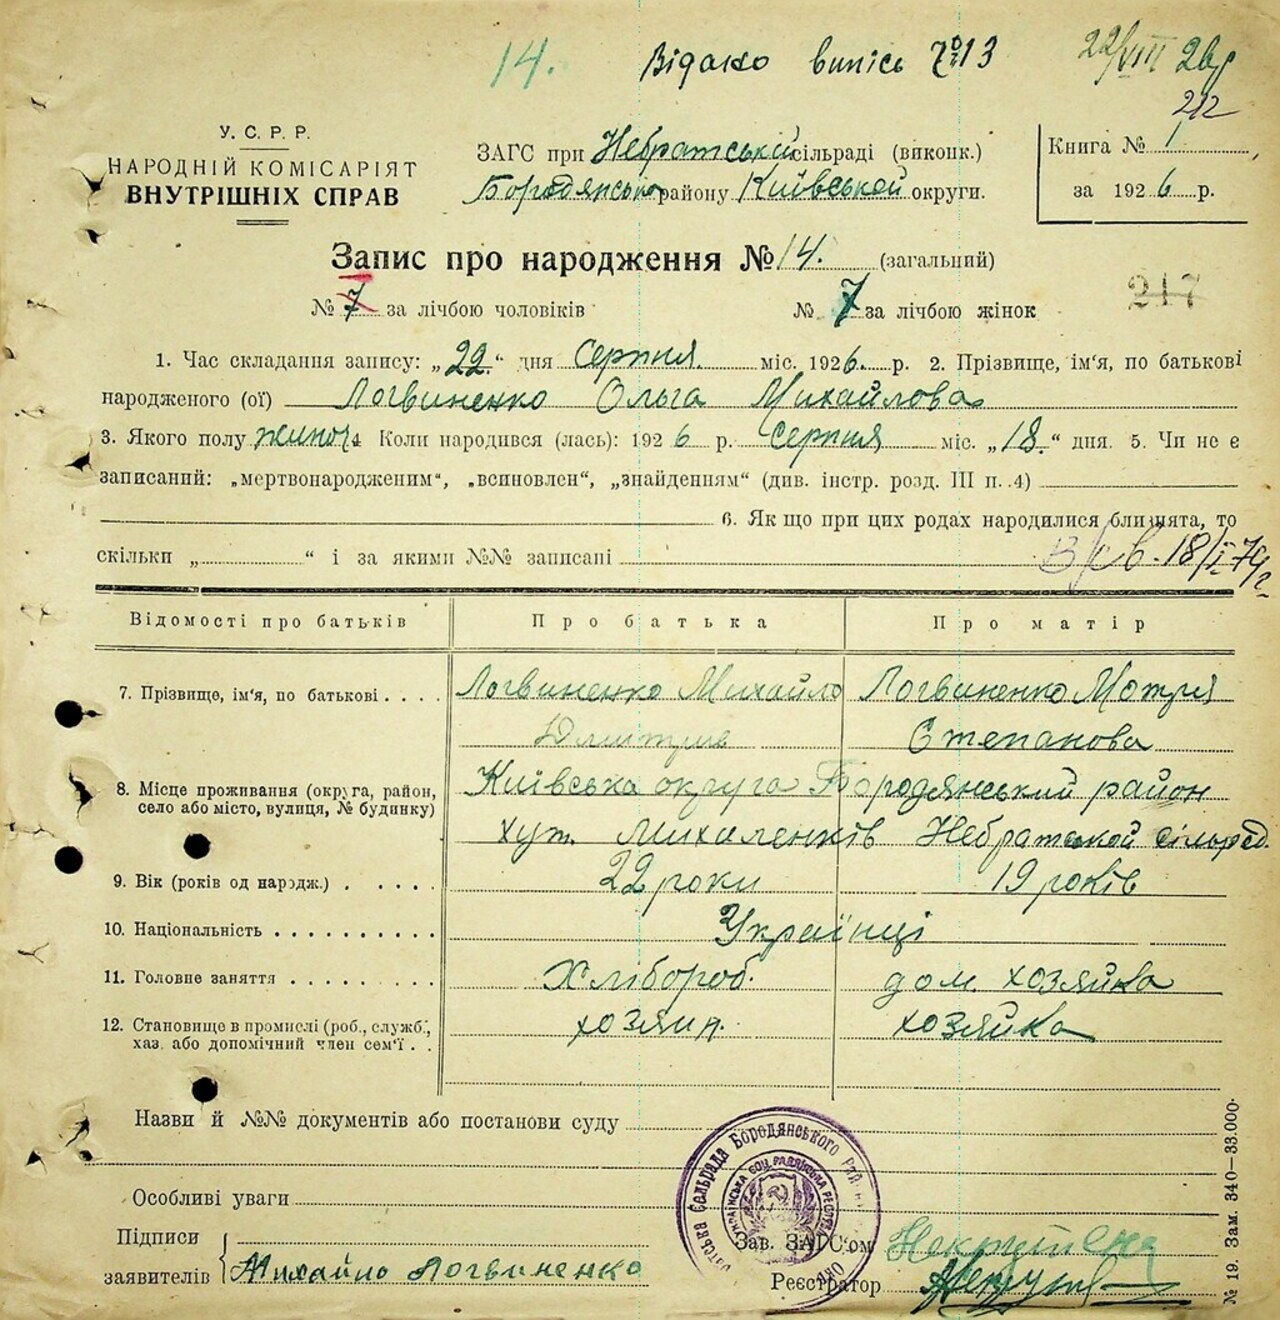 14. Відано випісь № 13 22/VIII 26р
212
У. С. Р. Р.
НАРОДНІЙ КОМІСАРІЯТ
ВНУТРІШНІХ СПРАВ
ЗАГС при Небратській сільраді (виконк.)
Бородянсько району Київської округи.
Книга № 1
за 1926 р.
Запис про народження № 14. (загальний)
№ 7 за лічбою чоловіків № 7 за лічбою жінок
217
1. Час складання запису: „22.“ дня Серпня. міс. 1926. р. 2. Прізвище, ім'я, по батькові
народженого (ої) Логвиненко Ольга Михайлова
3. Якого полу жиноч. 4 Коли народився (лась): 1926 р. серпня міс. „18.“ дня. 5. Чи не є
записаний: „мертвонародженим“, „всиновлен“, „знайденням“ (див. інстр. розд. III п. 4)
6. Як що при цих родах народилися близнята, то
скільки „ “ і за якими №№ записані
18/I 74г.
Відомості про батьків Про батька Про матір
7. Прізвище, ім'я, по батькові . . . . Логвиненко Михайло Логвиненко Мотря
Дмитрів Степанова
8. Місце проживання (округа, район, село або місто, вулиця, № будинку) Київська округа Бородянський район
хут. Михаленків Небратской сільрад.
9. Вік (років од народж.) . . . . . 22 роки 19 років
10. Національність . . . . . . . . . . Українці
11. Головне заняття . . . . . . . . . Хлібороб. дом. хозяйка
12. Становище в промислі (роб., службˮ, хаз. або допомічний член сем'ї . . хозяин. хозяйка
Назви й №№ документів або постанови суду
Особливі уваги
Підписи
заявителів Михайло Логвиненко
Зав. ЗАГС'ом
Реєстратор
сельрада Бородянського
№ 19. Зам. 340—33.000.